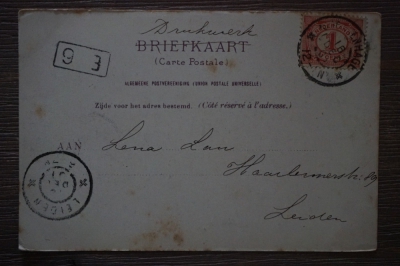 Drukwerk
BRIEFKAART
(Carte Postale)
9 3
ALGEMEENE POSTVEREENIGING (UNION POSTALE UNIVERSELLE)
Zijde voor het adres bestemd. (Côté réservé à l'adresse.)
AAN
Lena Lan
Haarlemmerstr.
Leiden
LEIDEN